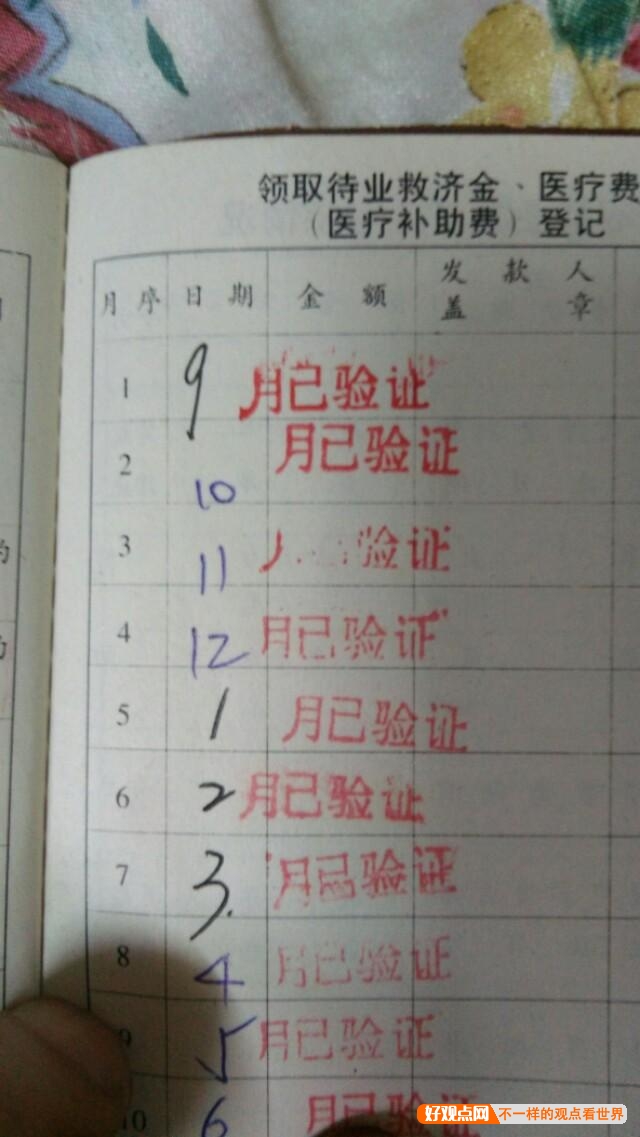 领取待业救济金、医疗费
（医疗补助费）登记
月序 日期 金额 发款人盖章
1 9 月已验证
2 10 月已验证
3 11 验证
4 12 月已验证
5 1 月已验证
6 2 月已验证
7 3. 月已验证
8 4 月已验证
9 5 月已验证
10 6 月已验证
的
好观点网 不一样的观点看世界